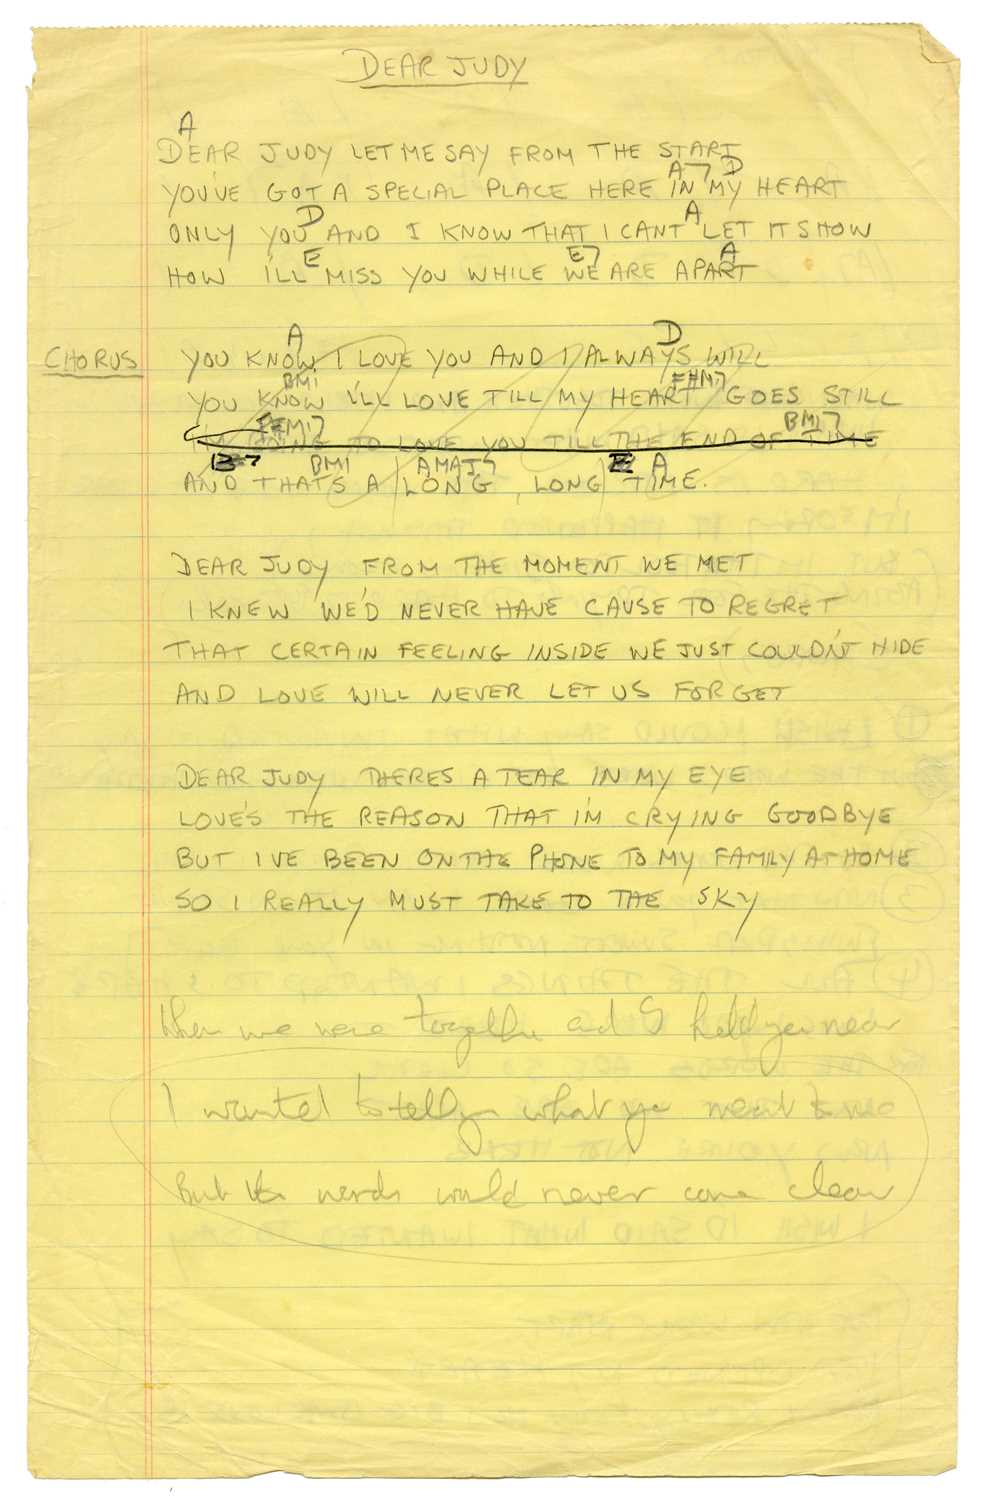 DEAR JUDY
A
DEAR JUDY LET ME SAY FROM THE START
A7 D
YOU'VE GOT A SPECIAL PLACE HERE IN MY HEART
D A
ONLY YOU AND I KNOW THAT I CANT LET IT SHOW
E E7 A
HOW I'LL MISS YOU WHILE WE ARE APART
A D
CHORUS YOU KNOW I LOVE YOU AND I ALWAYS WILL
BMI F#MI7
YOU KNOW I'LL LOVE TILL MY HEART GOES STILL
F#MI7 BMI7
I'M GOING TO LOVE YOU TILL THE END OF TIME
BMI AMAJ7 E A
AND THAT'S A LONG, LONG TIME.
DEAR JUDY FROM THE MOMENT WE MET
I KNEW WE'D NEVER HAVE CAUSE TO REGRET
THAT CERTAIN FEELING INSIDE WE JUST COULDN'T HIDE
AND LOVE WILL NEVER LET US FORGET
DEAR JUDY THERES A TEAR IN MY EYE
LOVE'S THE REASON THAT I'M CRYING GOODBYE
BUT I'VE BEEN ON THE PHONE TO MY FAMILY AT HOME
SO I REALLY MUST TAKE TO THE SKY
When we were together and I held you near
I wanted to tell you what you meant to me
But the words would never come clear